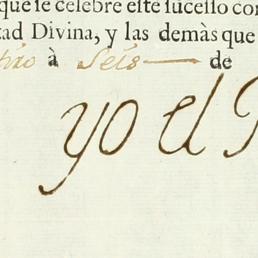 que ſe celebre eſte ſuceſſo con
tad Divina, y las demàs que
tiro à Seis de
yo el R